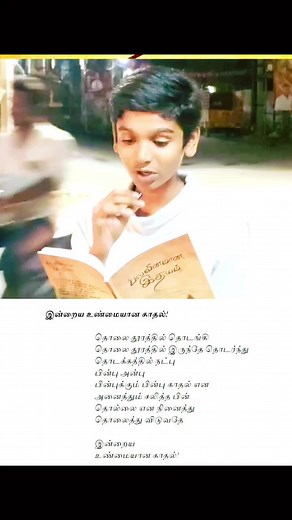 பலவீனமான
இதயம்
இன்றைய உண்மையான காதல்!
தொலை தூரத்தில் தொடங்கி
தொலை தூரத்தில் இருந்தே தொடர்ந்து
தொடக்கத்தில் நட்பு
பின்பு அன்பு
பின்புக்கும் பின்பு காதல் என
அனைத்தும் சலித்த பின்
தொல்லை என நினைத்து
தொலைத்து விடுவதே
இன்றைய
உண்மையான காதல்!